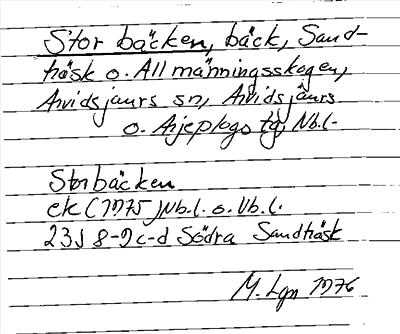 Storbäcken, bäck, Sand-
träsk o. Allmänningsskogen,
Arvidsjaurs sn, Arvidsjaurs
o. Arjeplogs tg, Nb.l.
Storbäcken
ek (1975) Nb.l. o. Vb.l.
23J 8-9c-d Södra Sandträsk
M. Lgn 1976